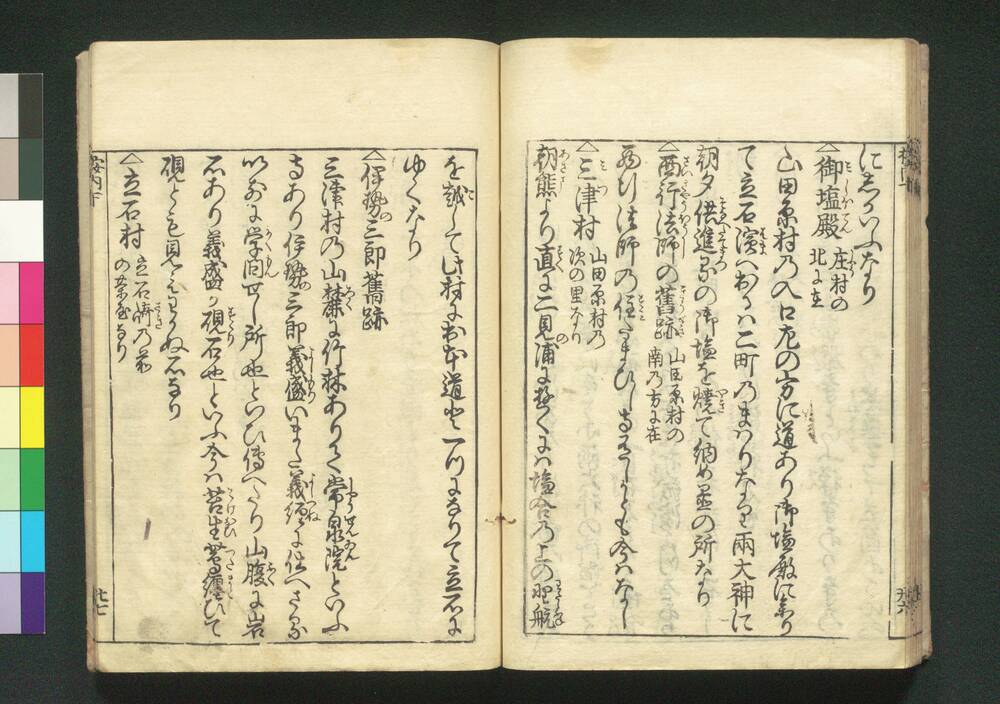 にむかふなり
△御塩殿 庄村の北に在
山田原村の入口左の方に道あり御塩殿に参り
て立石濱へおよそ二町のまはりなり両大神に
朝夕供進るの御塩を焼て納め置の所なり
△西行法師の舊跡 山田原村の南の方に在
西行法師の住たまひし寺ありしも今はなし
△三津村 山田原村の次の里なり
朝熊より直に二見浦に趣くには塩合の上の野航
を越して此村に出本道と一つになりて立石に
ゆくなり
△伊勢三郎舊跡
三津村の山麓に竹林ありて常泉院といふ
寺あり伊勢三郎義盛いまだ義経に仕へざる
以前に学問せし所也といひ傳へたり山腹に岩
石あり義盛が硯石也といふ今は苔生蔦纏ひて
硯とも見えわかぬ石なり
△立石村 立石崎の前の茶屋なり
廿六
案内下
廿七